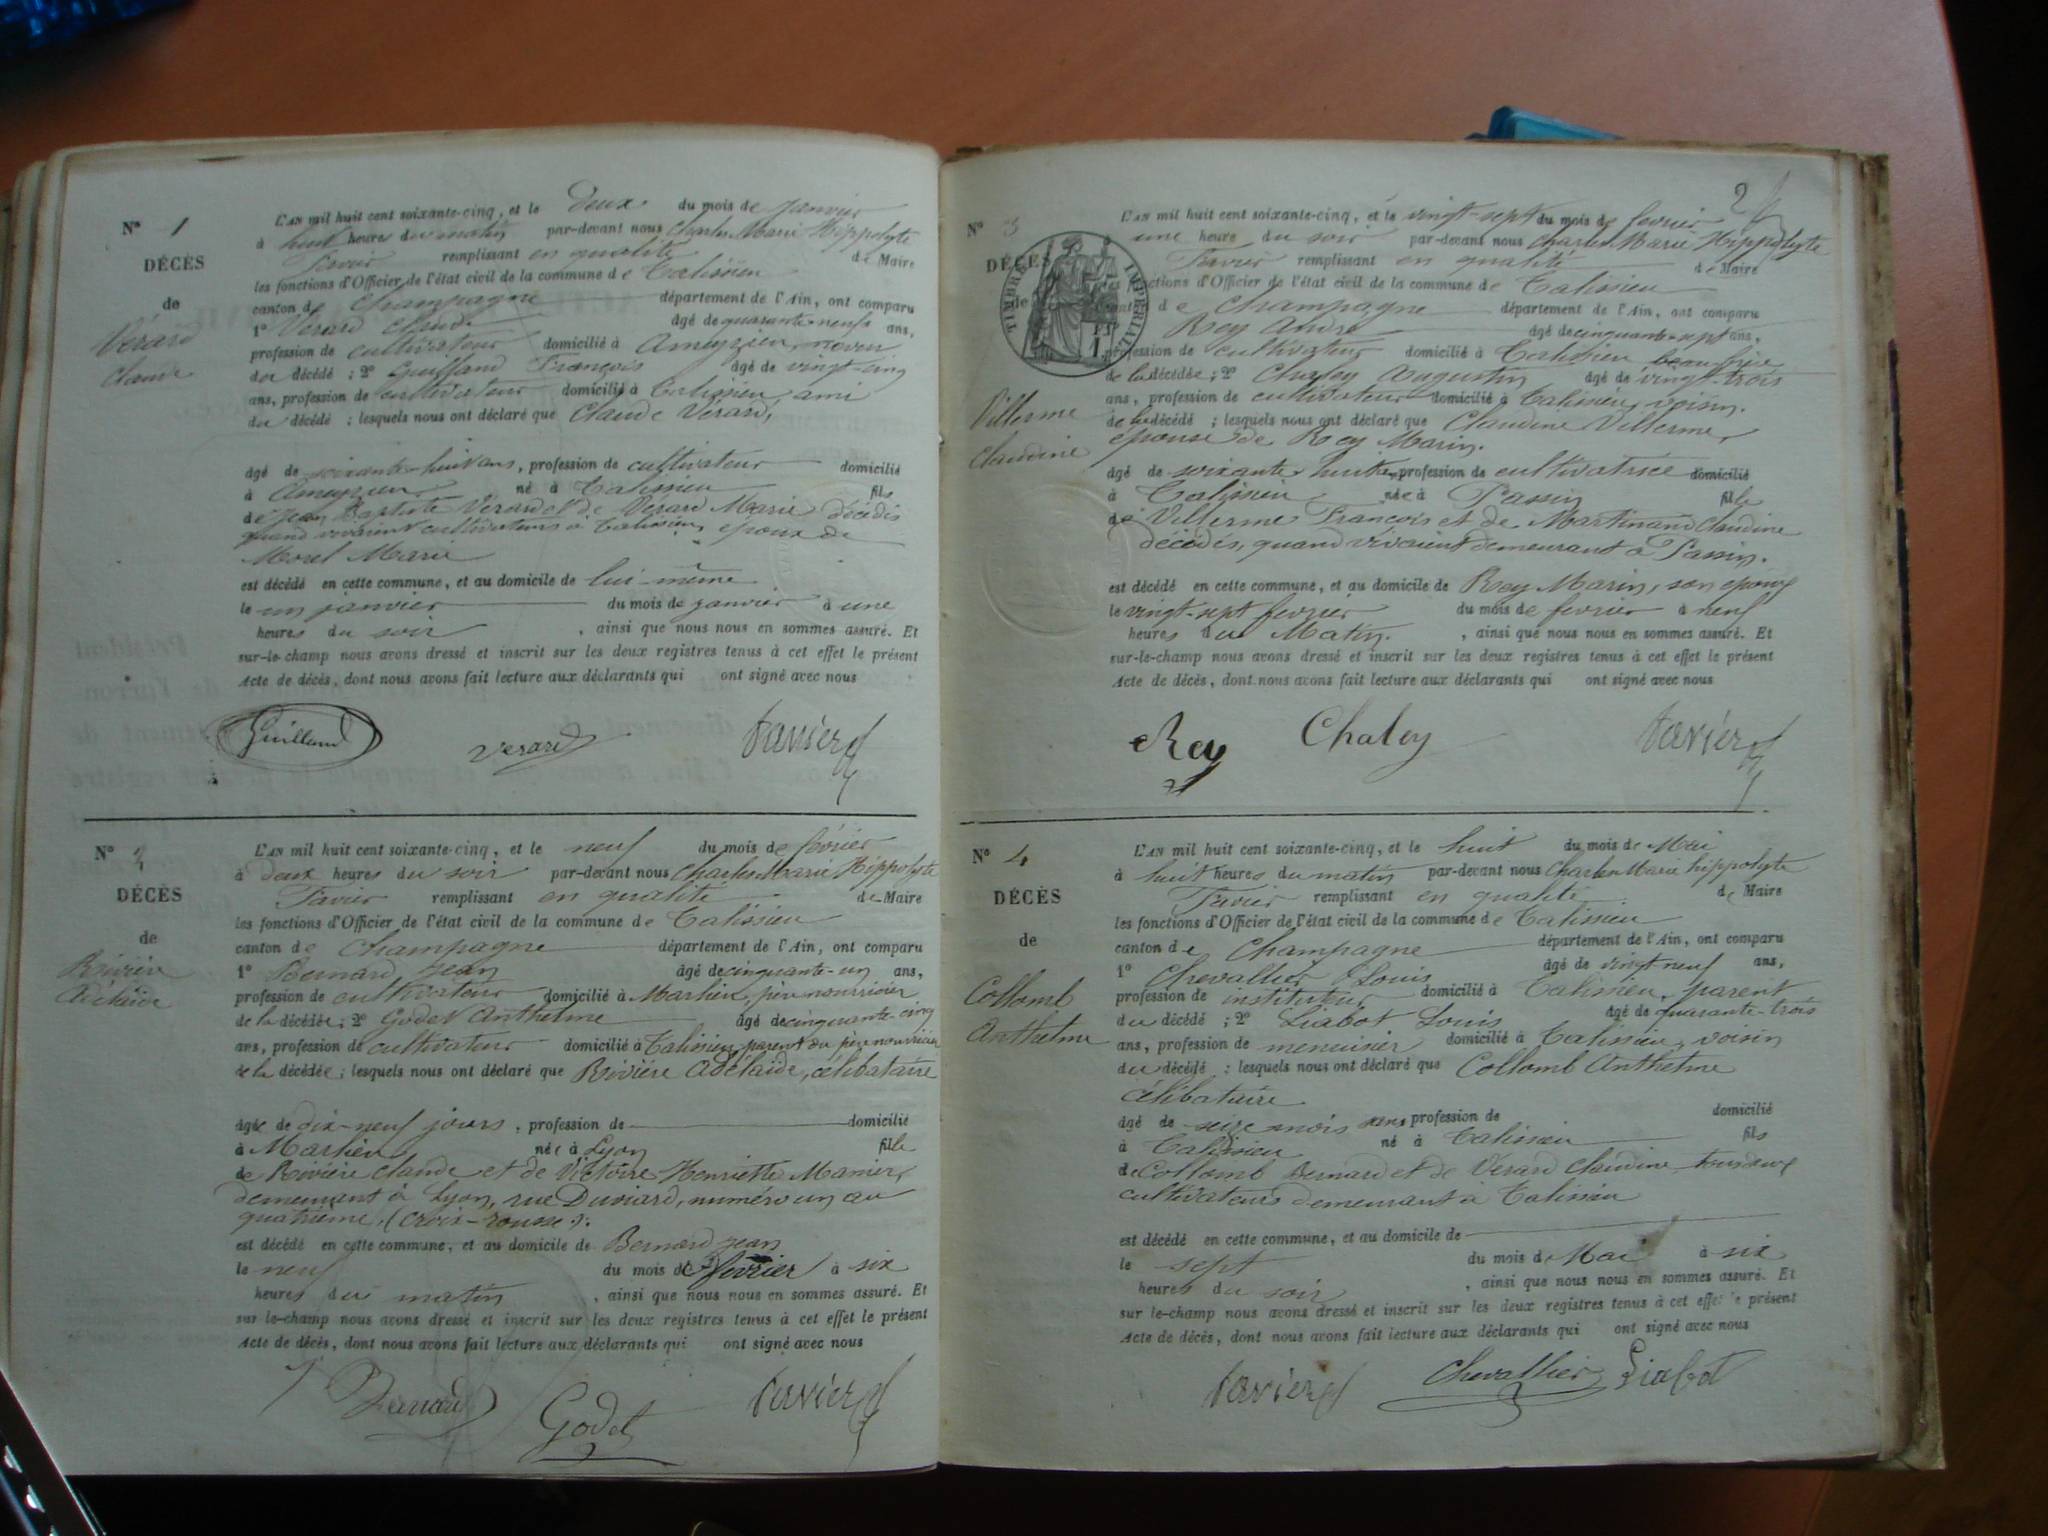 N° 1
DÉCÈS
de
Verard
Claude
L'AN mil huit cent soixante-cinq, et le deux du mois de janvier
à huit heures du matin par-devant nous Charles Marie Hippolyte
Tavier remplissant en qualité de Maire
les fonctions d'Officier de l'état civil de la commune de Talissieu
canton de Champagne département de l'Ain, ont comparu
1° Vérard Claude âgé de quarante-neuf ans,
profession de cultivateur domicilié à Ameyzieu, neveu
du décédé ; 2° Guilland François âgé de vingt-cinq
ans, profession de cultivateur domicilié à Talissieu, ami
du décédé ; lesquels nous ont déclaré que Claude Vérard,
âgé de soixante-huit ans, profession de cultivateur domicilié
à Ameyzieu né à Talissieu fils
de Jean Baptiste Verard et de Verard Marie décédés
quand vivaient cultivateurs à Talissieu, époux de
Morel Marie
est décédé en cette commune, et au domicile de lui-même
le un janvier du mois de janvier à une
heures du soir , ainsi que nous nous en sommes assuré. Et
sur-le-champ nous avons dressé et inscrit sur les deux registres tenus à cet effet le présent
Acte de décès, dont nous avons fait lecture aux déclarants qui ont signé avec nous
Guilland Verard Tavier
N° 2
DÉCÈS
de
Rivière
Adélaïde
L'AN mil huit cent soixante-cinq, et le neuf du mois de février
à deux heures du soir par-devant nous Charles Marie Hippolyte
Tavier remplissant en qualité de Maire
les fonctions d'Officier de l'état civil de la commune de Talissieu
canton de Champagne département de l'Ain, ont comparu
1° Bernard Jean âgé de cinquante-un ans,
profession de cultivateur domicilié à Marlieu, père nourricier
de la décédée ; 2° Godet Anthelme âgé de cinquante-cinq
ans, profession de cultivateur domicilié à Talissieu, parent du père nourricier
de la décédée ; lesquels nous ont déclaré que Rivière Adélaïde, célibataire
âgée de dix-neuf jours, profession de domicilié
à Marlieu née à Lyon fille
de Rivière Claude et de Victoire Henriette Manier,
demeurant à Lyon, rue Duviard, numéro un au
quatrième, (croix-rousse).
est décédé en cette commune, et au domicile de Bernard Jean
le neuf du mois de février à six
heures du matin , ainsi que nous nous en sommes assuré. Et
sur-le-champ nous avons dressé et inscrit sur les deux registres tenus à cet effet le présent
Acte de décès, dont nous avons fait lecture aux déclarants qui ont signé avec nous
Bernard Godet Tavier
2
N° 3
DÉCÈS
de
TIMBRE IMPÉRIAL
1 F
Villerme
Claudine
L'AN mil huit cent soixante-cinq, et le vingt-sept du mois de fevrier
une heure du soir par-devant nous Charles Marie Hippolyte
Tavier remplissant en qualité de Maire
fonctions d'Officier de l'état civil de la commune de Talissieu
de Champagne département de l'Ain, ont comparu
Rey André âgé de cinquante-sept ans,
profession de cultivateur domicilié à Talissieu beau-frère
de la décédée ; 2° Chaley Augustin âgé de vingt-trois
ans, profession de cultivateur domicilié à Talissieu, voisin.
de la décédé ; lesquels nous ont déclaré que Claudine Villerme,
épouse de Rey Marin.
âgé de soixante huit ans, profession de cultivatrice domicilié
à Talissieu née à Passin fille
de Villerme François et de Martinand Claudine
décédés, quand vivaient demeurant à Passin.
est décédé en cette commune, et au domicile de Rey Marin, son époux
le vingt-sept fevrier du mois de fevrier à neuf
heures du Matin. , ainsi que nous nous en sommes assuré. Et
sur-le-champ nous avons dressé et inscrit sur les deux registres tenus à cet effet le présent
Acte de décès, dont nous avons fait lecture aux déclarants qui ont signé avec nous
Rey Chaley Tavier
N° 4
DÉCÈS
de
Collomb
Anthelme
L'AN mil huit cent soixante-cinq, et le huit du mois de Mai
à huit heures du matin par-devant nous Charles Marie hippolyte
Tavier remplissant en qualité de Maire
les fonctions d'Officier de l'état civil de la commune de Talissieu
canton de Champagne département de l'Ain, ont comparu
1° Chevallier Louis âgé de vingt neuf ans,
profession de instituteur domicilié à Talissieu, parent
du décédé ; 2° Liabot Louis âgé de quarante-trois
ans, profession de menuisier domicilié à Talissieu, voisin
du décédé ; lesquels nous ont déclaré que Collomb Anthelme
célibataire
âgé de seize mois sans profession de domicilié
à Talissieu né à Talissieu fils
de Collomb Bernard et de Vérard Claudine, tous deux
cultivateurs demeurant à Talissieu
est décédé en cette commune, et au domicile de
le sept du mois de Mai à six
heures du soir , ainsi que nous nous en sommes assuré. Et
sur le-champ nous avons dressé et inscrit sur les deux registres tenus à cet effet le présent
Acte de décès, dont nous avons fait lecture aux déclarants qui ont signé avec nous
Tavier Chevallier Liabot